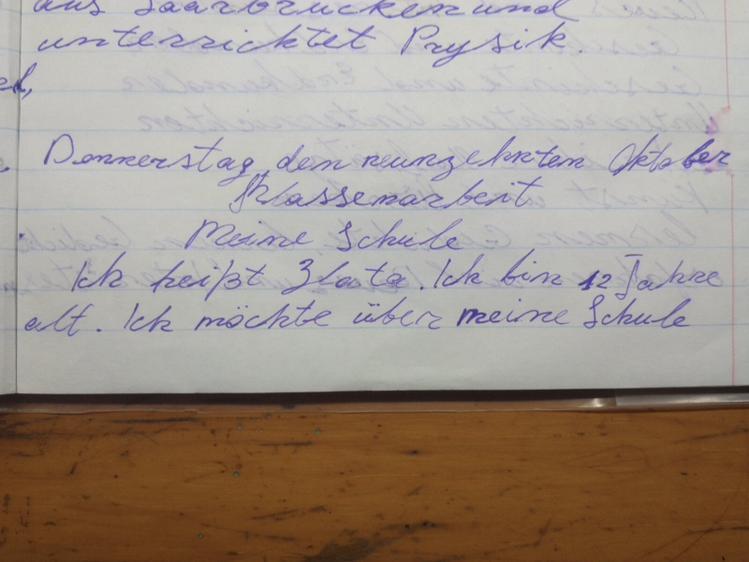 aus Saarbrücken und
unterrichtet Prysik.
Donnerstag, den neunzehnten Oktober
Klassenarbeit
Meine Schule
Ich heißt Zlata. Ich bin 12 Jahre
alt. Ich möchte über meine Schule